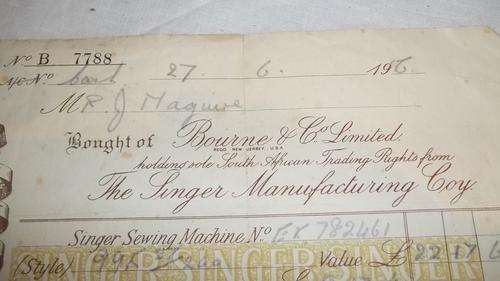 No B 7788
A/C No Cash 27. 6. 19
MR J Maguire
Bought of Bourne & Co. Limited.
REGD. NEW JERSEY. U.S.A.
holding sole South African Trading Rights from
The Singer Manufacturing Coy.
Singer Sewing Machine No EX 782461
(Style) Value £ 22 17 6
SINGER SINGER